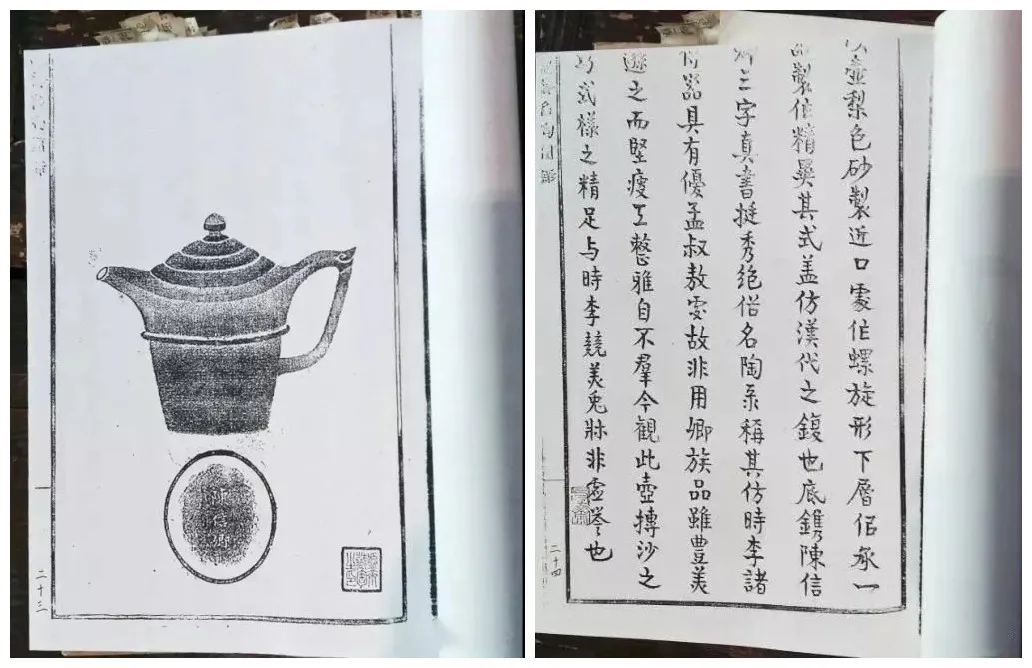 一
二十三
壺梨色砂製近口處作螺旋形下層佀承一
製作精異其式盖仿漢代之鍑也底鐫陳信
卿三字真書挺秀絶俗名陶系稱其仿時李諸
器具有優孟叔敖處故非用卿族品雖豊美
遜之而堅瘦工整雅自不羣今觀此壺摶沙之
式樣之精足与時李競美兎牀非虚誉也
名陶圖錄
二十四